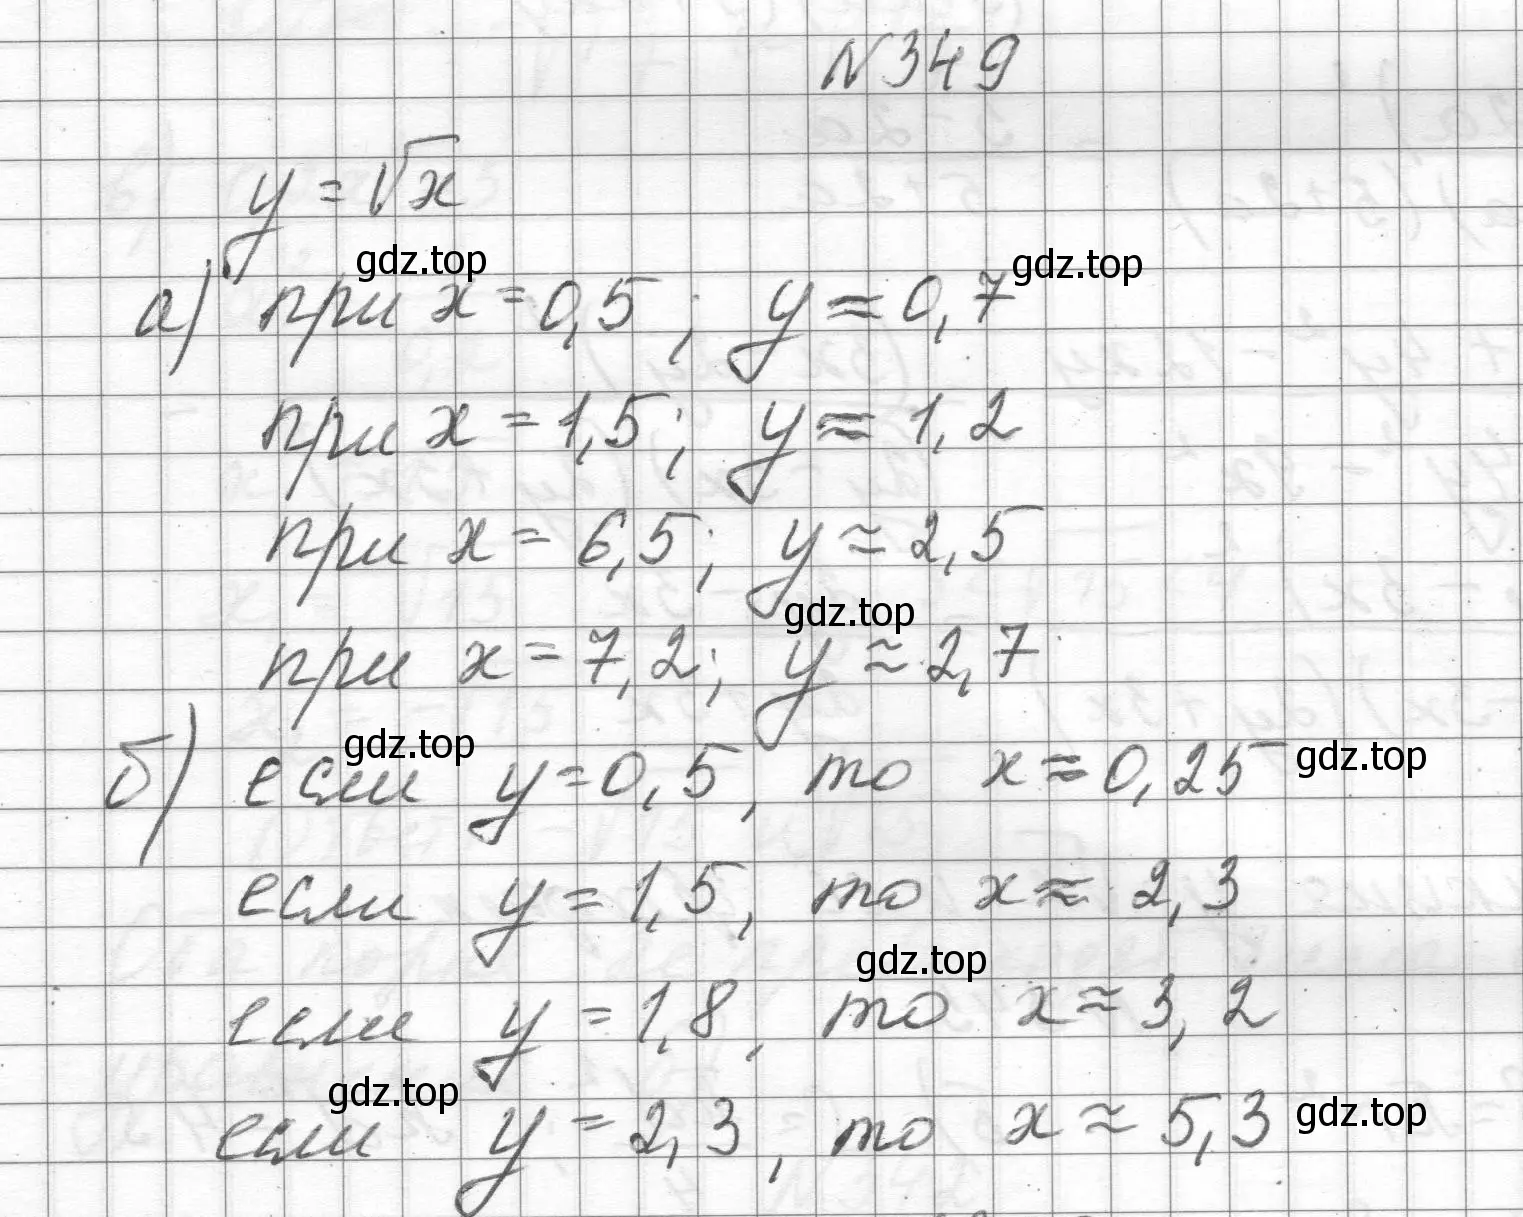 N349
y = √x
gdz.top gdz.top
а) при x = 0,5 ; y ≈ 0,7
при x = 1,5; y ≈ 1,2
при x = 6,5; y ≈ 2,5
gdz.top
при x = 7,2; y ≈ 2,7
gdz.top gdz.top
б) если y = 0,5, то x ≈ 0,25
если y = 1,5, то x ≈ 2,3
gdz.top
если y = 1,8, то x ≈ 3,2
gdz.top gdz.top
если y = 2,3, то x ≈ 5,3